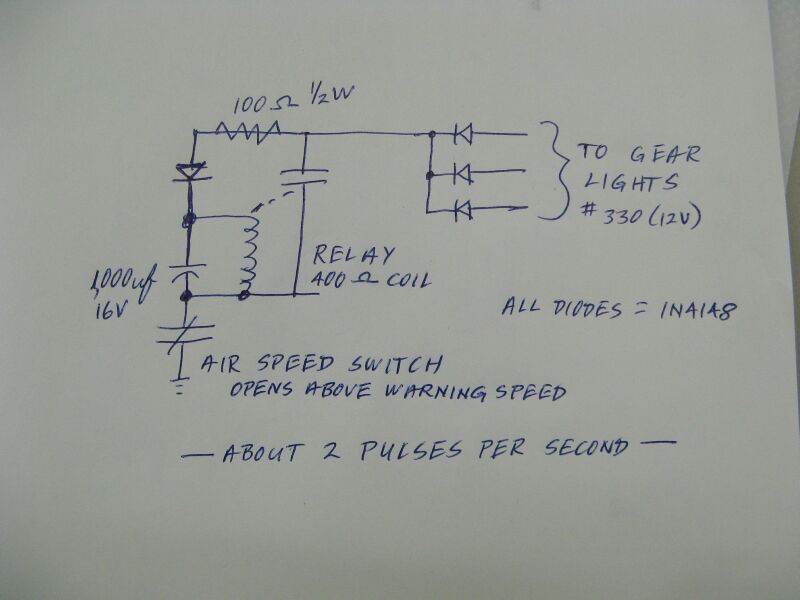 100Ω ½W
TO GEAR
LIGHTS
# 330 (12V)
RELAY
400 Ω COIL
1,000uf
16V
ALL DIODES = 1N4148
AIR SPEED SWITCH
OPENS ABOVE WARNING SPEED
— ABOUT 2 PULSES PER SECOND —